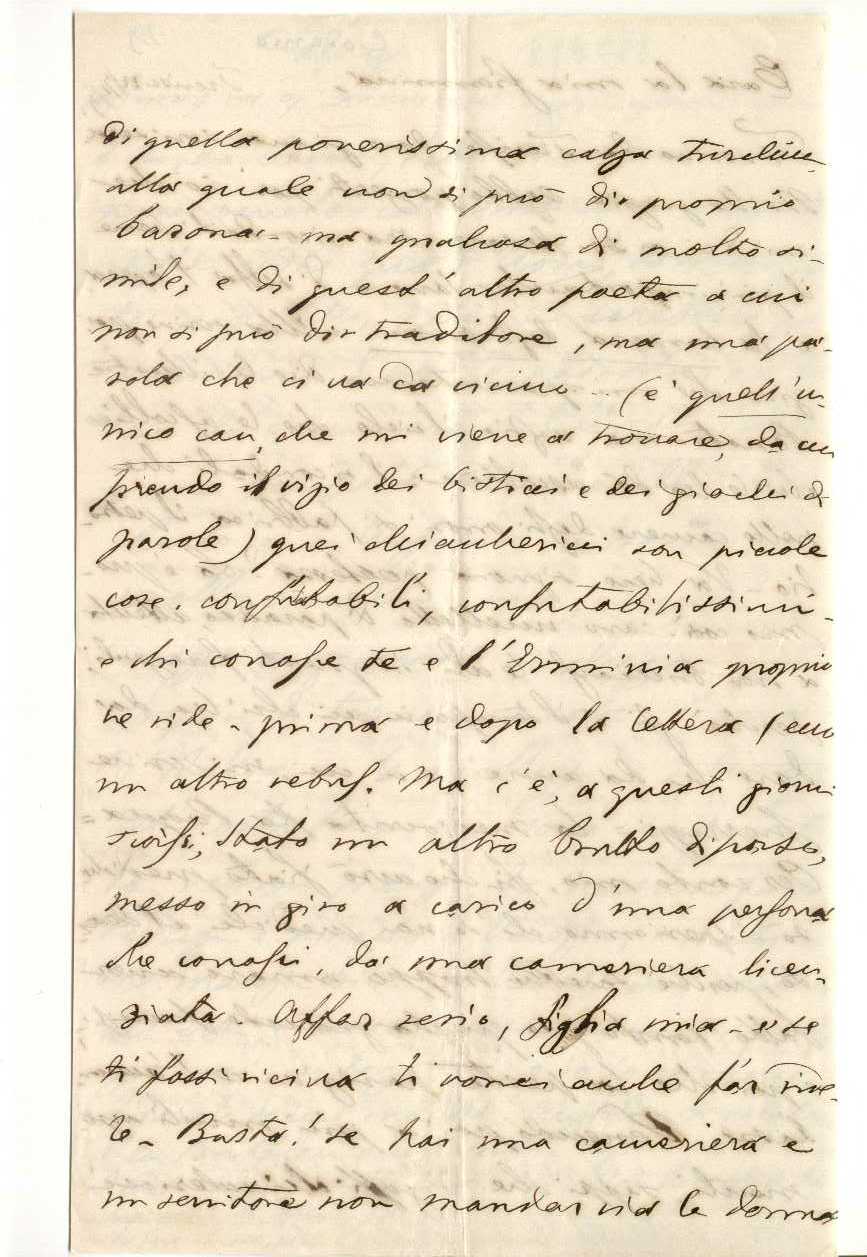 di quella poverissima calza
alla quale non si può dir proprio
barona - ma qualcosa di molto si-
mile, e di quest'altro poeta a cui
non si può dir traditore, ma una pa-
rola che ci va da vicino - (è quell'u-
nico can, che mi viene a trovare, da cui
prendo il vizio dei bisticci e dei giochi di
parole) quei son piccole
cose. confutabili, confutabilissimi -
e chi conosce te e l'Erminia proprio
ne ride - prima e dopo la lettera (ecco
un altro rebus. Ma c'è, a questi giorni
scorsi, stato un altro
messo in giro a carico d'una persona
che conosci, da una cameriera licen-
ziata. Affar serio, figlia mia - e se
ti fossi vicina ti vorrei anche far ride-
re - Basta! se hai una cameriera e
un servitore non mandar via la donna